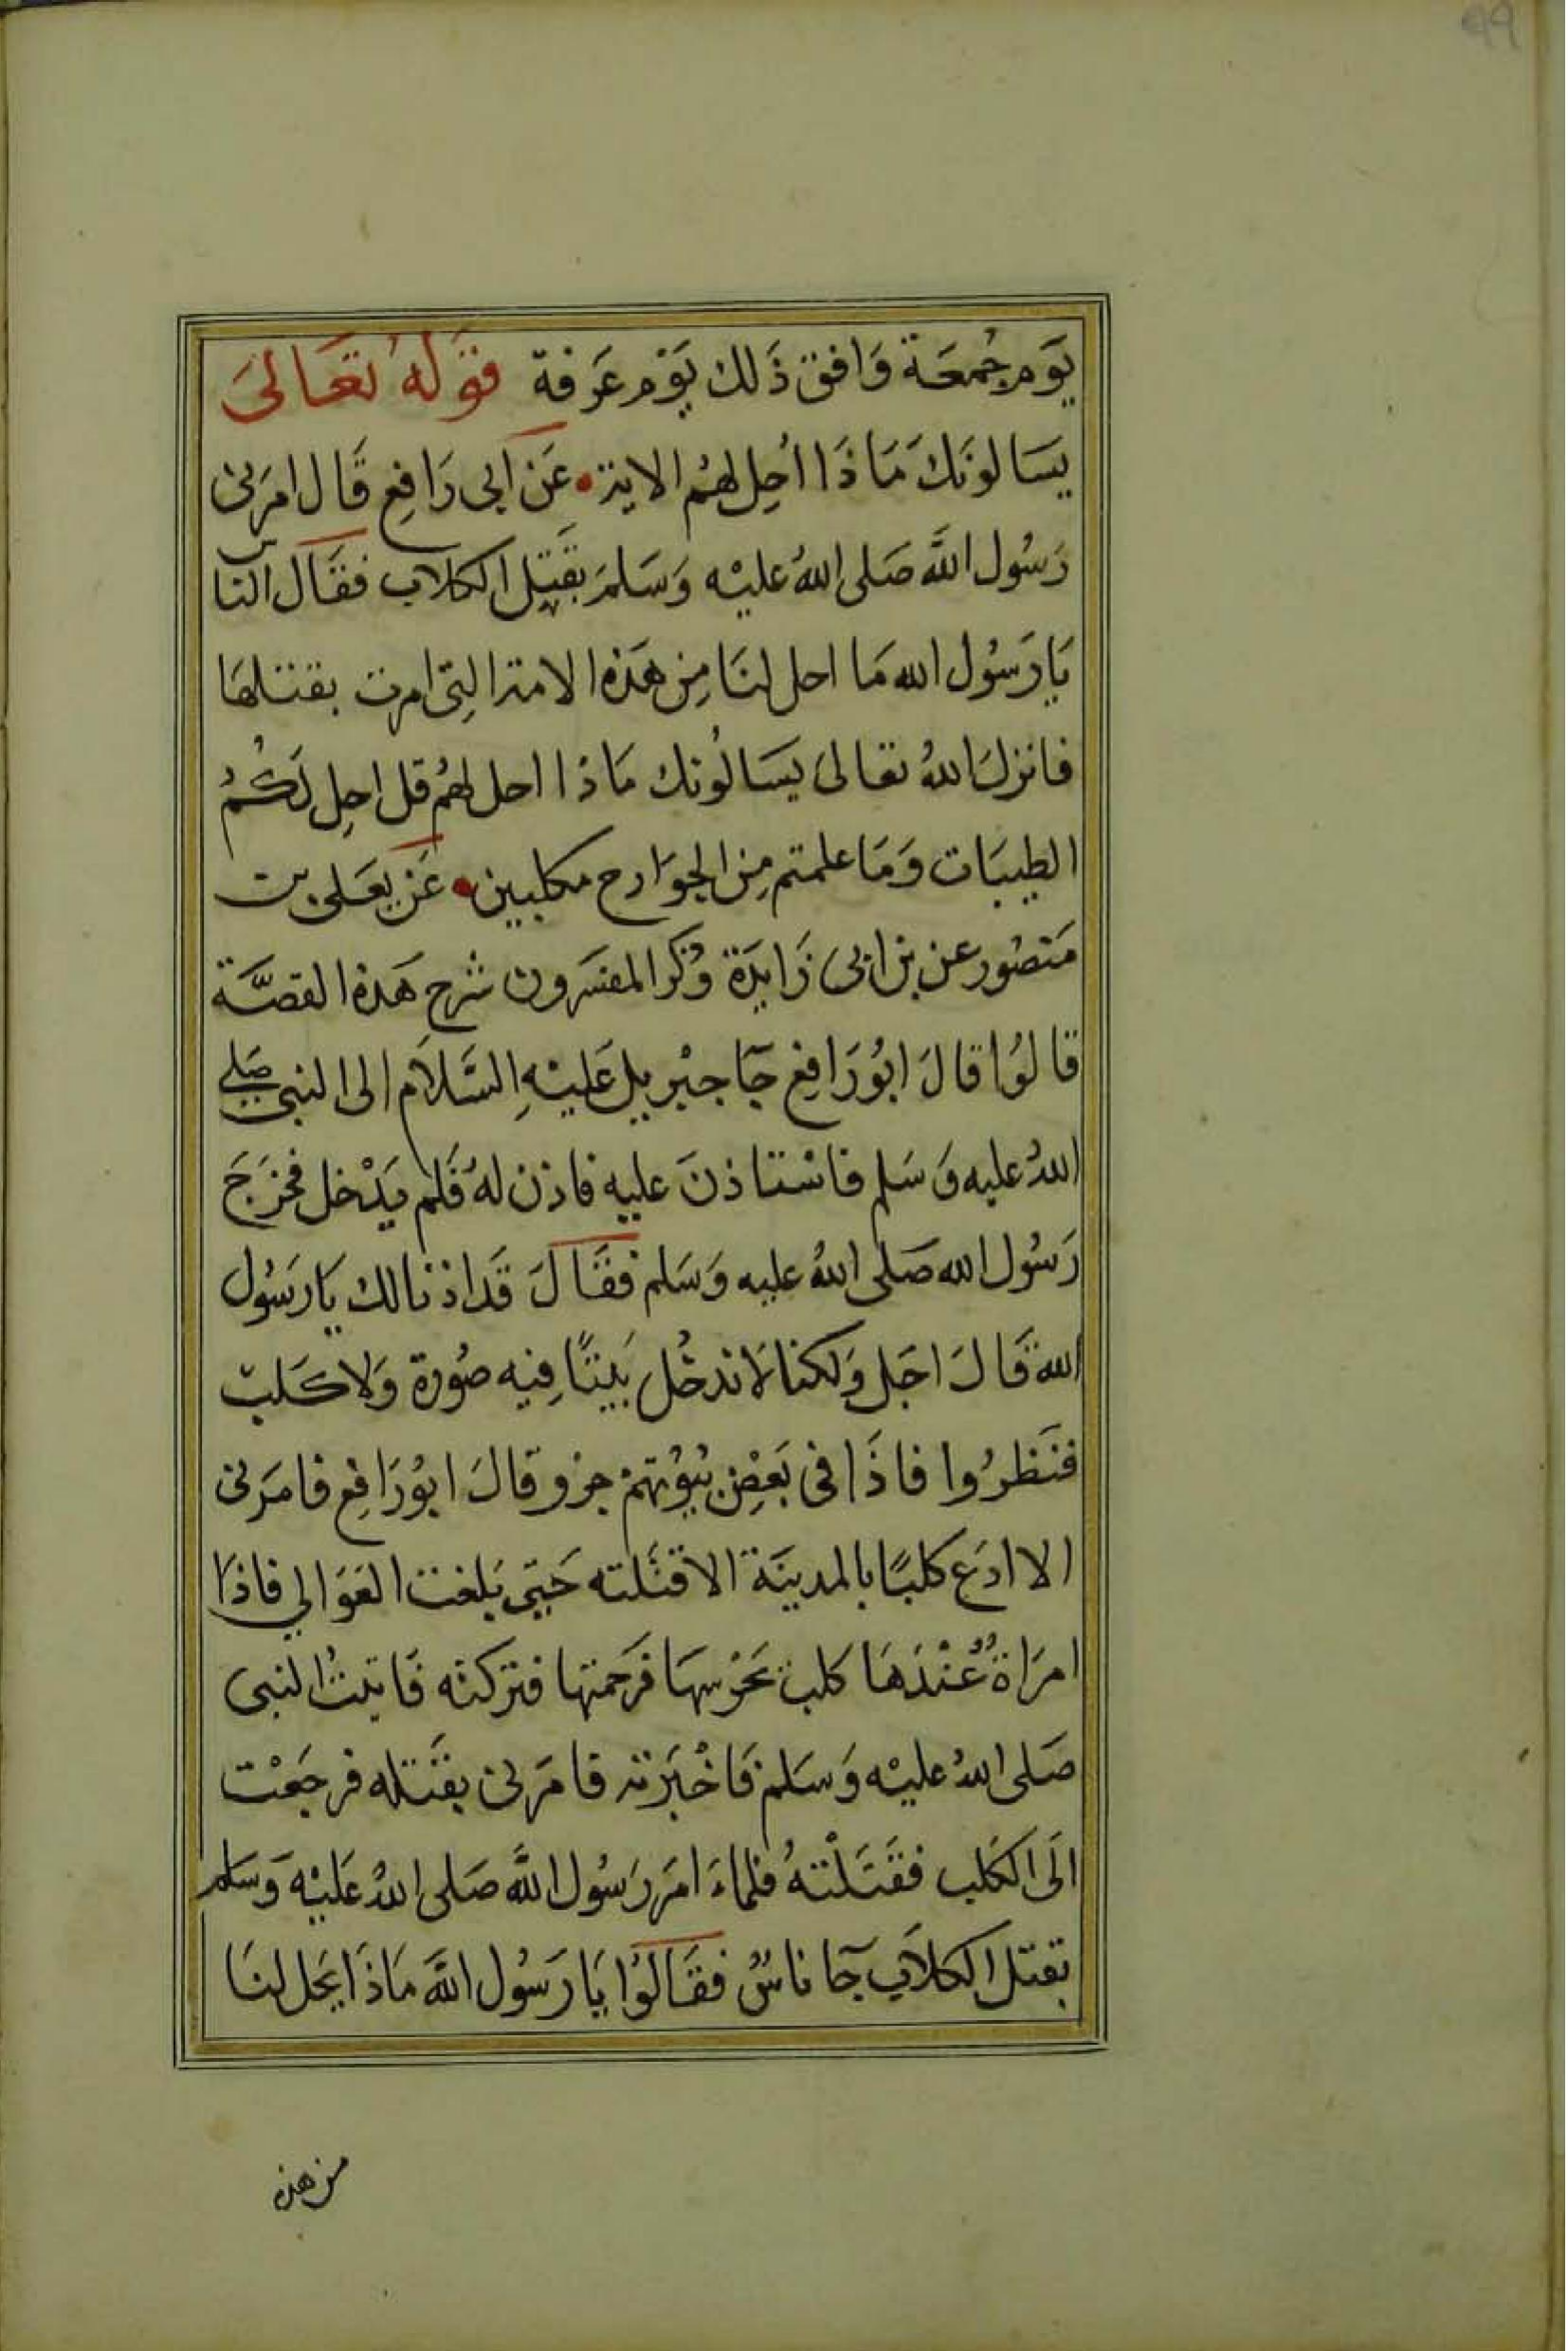 ٩٩
يَوم جُمعَة وَافق ذَلك يَوْم عَرَفة قَوْلهُ تَعَالىَ
يسَالونَكَ مَاذَا احُِل لهُم الاية • عَن ابى رَافِع قَال امَرَنى
رَسُول اللَّه صَلى اللهُ عليْه وَسَلمَ بقَتِل الكلاب فقَال الناس
يَا رَسُول الله مَا احل لنَا مِن هَذه الامة التِى امرت بقتلهَا
فانزلَ اللهُ تعَالىَ يسَالُونك مَاذا احل لهُم قل احِل لَكُمُ
الطيبَات وَمَا علمتم مِن الجوَارح مكلبين • عَن يعَلى بن
مَنصُور عن بن ابى زَايدَة وذكر المفسّرون شرح هَذه القصَّة
قالوُا قالَ ابُو رَافِع جَآ جبْريل عَليْهِ السَّلاَم الى النبى صَلى
اللهُ عليه وَسَلم فاسْتاذنَ عليه فاذن لهُ فَلم يَدْخل فخرَجَ
رَسُول الله صَلى اللهُ عليه وَسَلم فقَالَ قَد اذنا لك يَا رَسُول
الله قَالَ اجَل وَلكنا لاَ ندخُل بَيتًا فِيه صُورة وَلا كَلب
فنَظرُوا فاذَا فى بَعضِ بُيوُتهمْ جرْو قالَ ابوُ رَافِع فامَرَنى
الا ادَع كلبًا بالمدينَة الا قتَلته حَتِى بَلغت العَوَالي فاذَا
امرَاةُ عُنْدَهَا كلب يحَرْسهَا فرَحمتها فتركته فَاتيتُ النبى
صَلى اللهُ عليْه وَسَلم فَاخْبَرته فامَرَنى بقَتله فرجَعْت
الَى الكَلب فقَتَلْتهُ فلماءَ امَر رَسُول اللَّه صَلى اللهُ عَليْه وَسَلم
بقتل الكلاَب جَآ ناسُ فقَالوُا يَا رَسُول اللَّه مَاذَا يحَل لنَا
من هذه